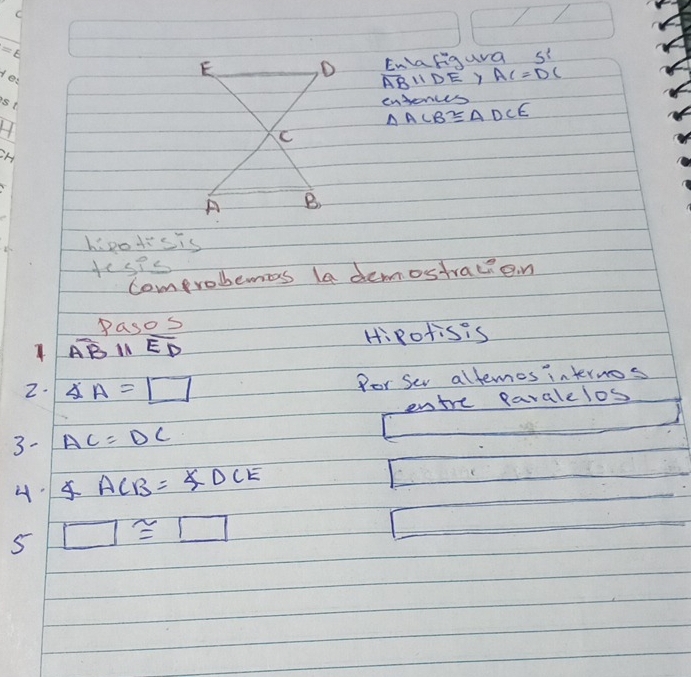 E D
C
A B
En la figura si
AB || DE y AC = DC
entonces
Δ ACB ≅ Δ DCE
hipotisis
tesis
comprobemos la demostracion
Pasos
1 AB || ED Hipotisis
2. ∡ A = Por ser alternos internos
entre paralelos
3- AC = DC
4. ∡ ACB = ∡ DCE
5 ≅